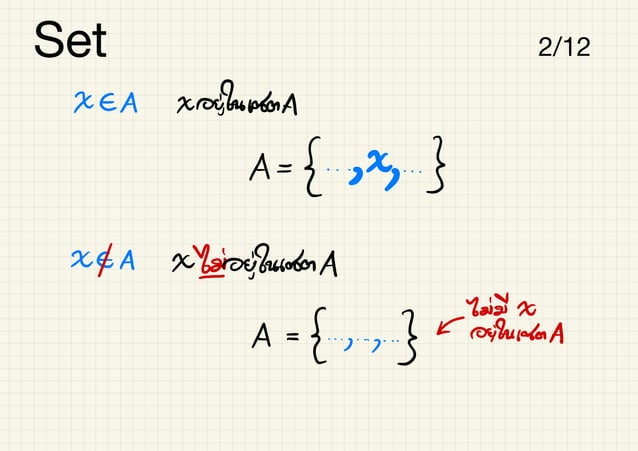 Set
2/12
x ∈ A x อยู่ในเซต A
A = { ..., x, ... }
x ∉ A x ไม่อยู่ในเซต A
A = { ..., ..., ... }
ไม่มี x
อยู่ในเซต A